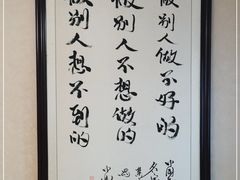 做别人做不好的
做别人不想做的
做别人想不到的